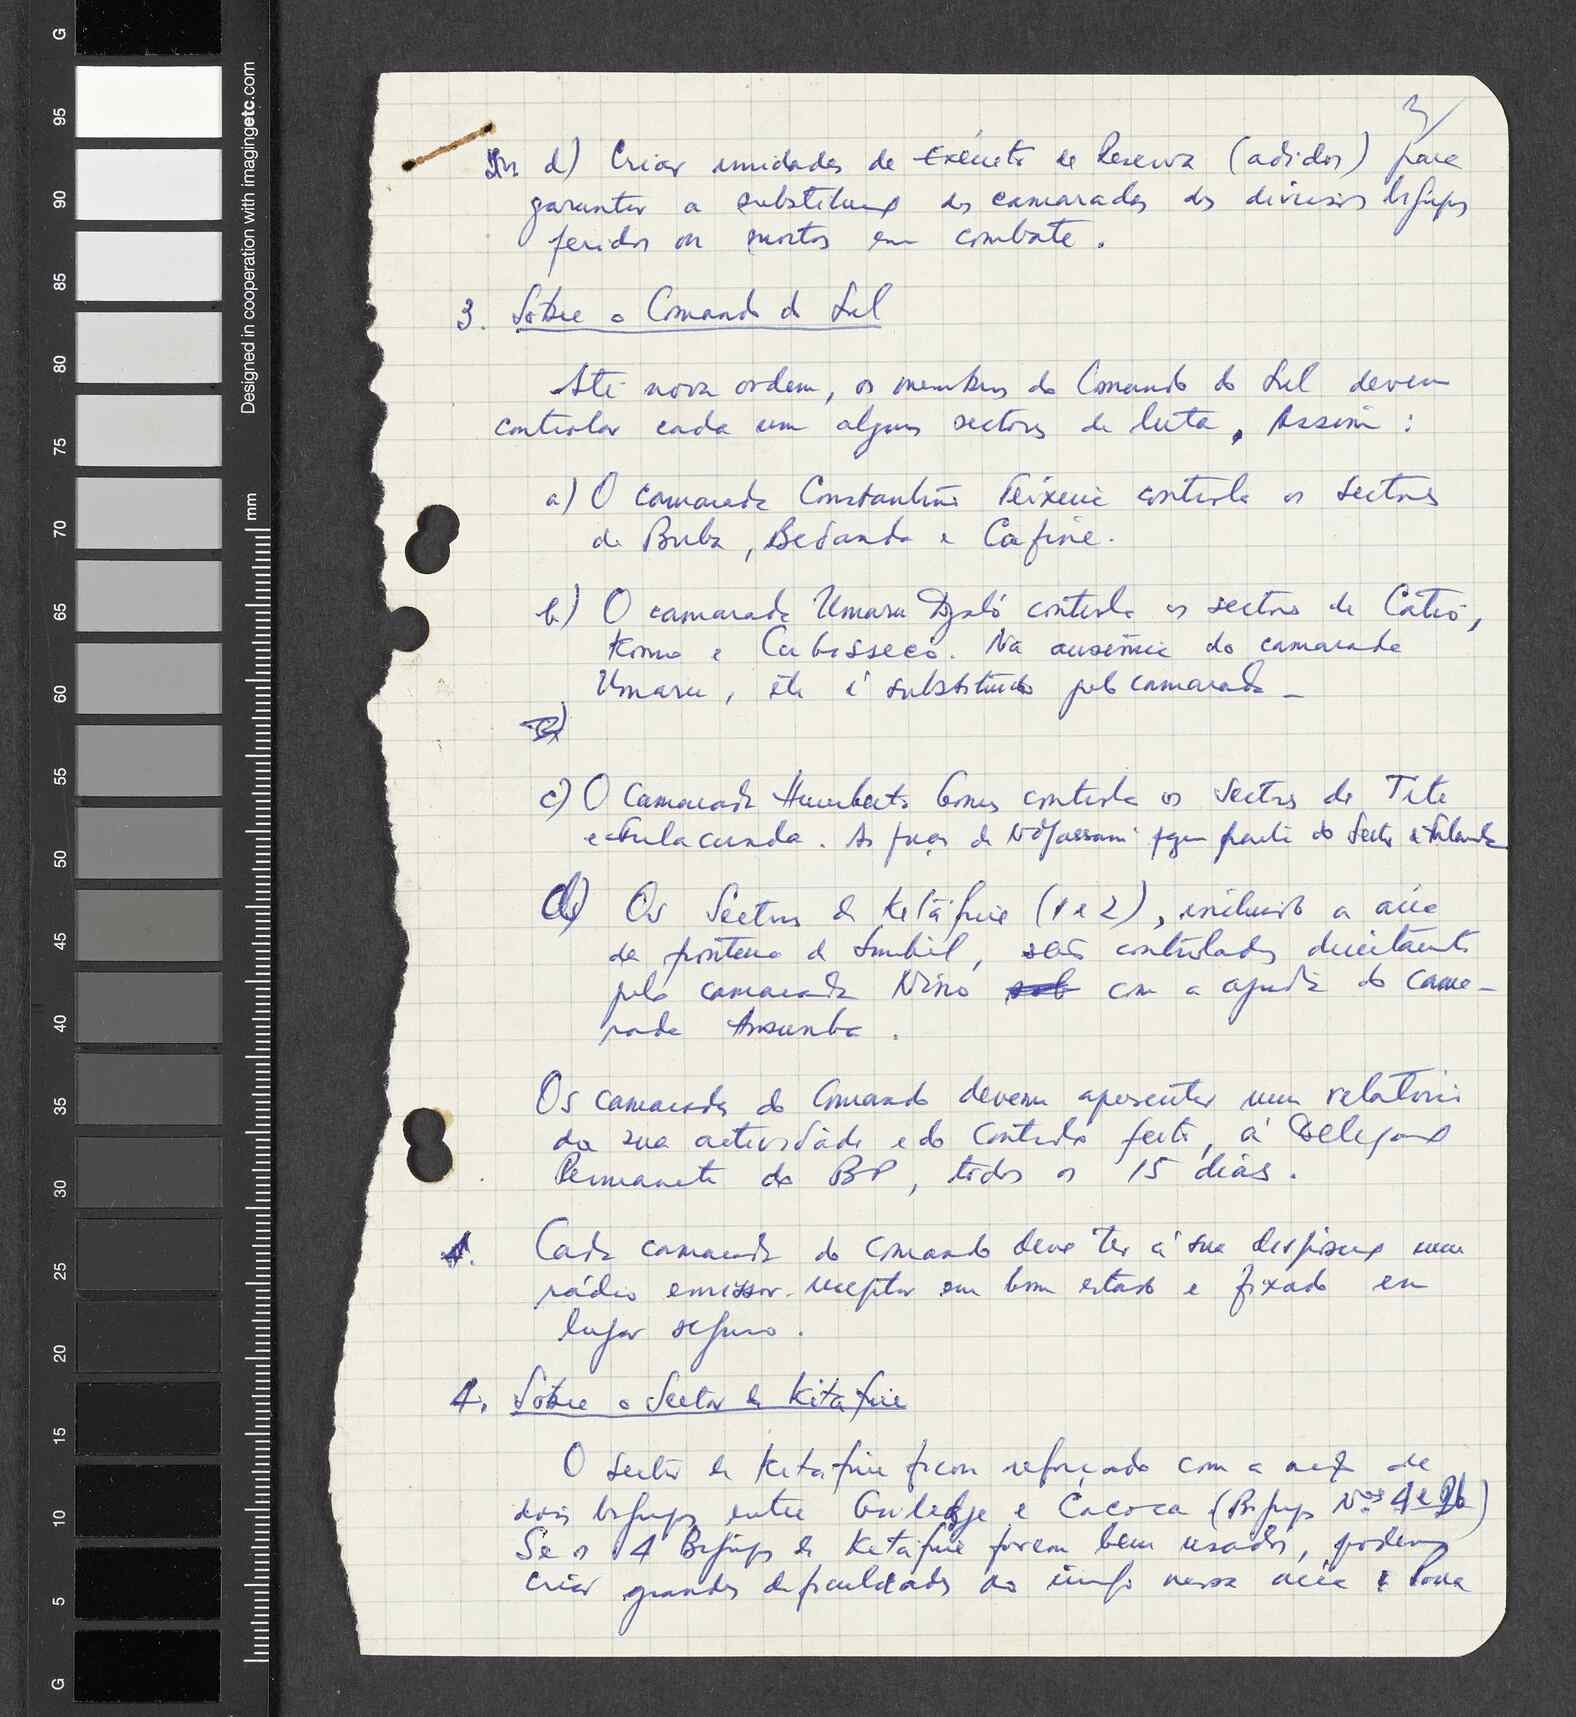 3/
d) Criar unidades de Exército de Reserva (adidos) para
garantir a substituição dos camaradas dos diversos bigrupos
feridos ou mortos em combate.
3. Sôbre o Comando do Sul
Até nova ordem, os membros do Comando do Sul devem
controlar cada um alguns sectores de luta. Assim:
a) O camarada Constantino Teixeira controla os sectores
de Buba, Bedanda e Cafine.
b) O camarada Umaru Djaló controla os sectores de Catió,
Komo e Cubisseco. Na ausência do camarada
Umaru, êle é substituido pelo camarada _
c) O camarada Humberto Gomes controla os sectores de Tite
e Fulacunda. As forças de N'Djassani fazem parte do Sector de Fulacunda
d) Os Sectores de Kitáfine (1 e 2), incluindo a área
da fronteira de Simbél, são controlados directamente
pelo camarada Nino sob com a ajuda do cama-
rada Ansumba.
Os camaradas do Comando devem apresentar um relatório
da sua actividade e do contrôlo feito, à Delegação
Permanente do BP, todos os 15 dias.
Cada camarada do Comando deve ter à sua disposição um
rádio emissor-receptor em bom estado e fixado em
lugar seguro.
4. Sôbre o Sector de Kitáfine
O sector de Kitáfine ficou reforçado com a acção de
dois bigrupos entre Guiledje e Cacoca (Bigrupos Nos 4 e 26)
Se os 4 Bigrupos de Kitáfine forem bem usados, podemos
criar grandes dificuldades ao inimigo nessa área e